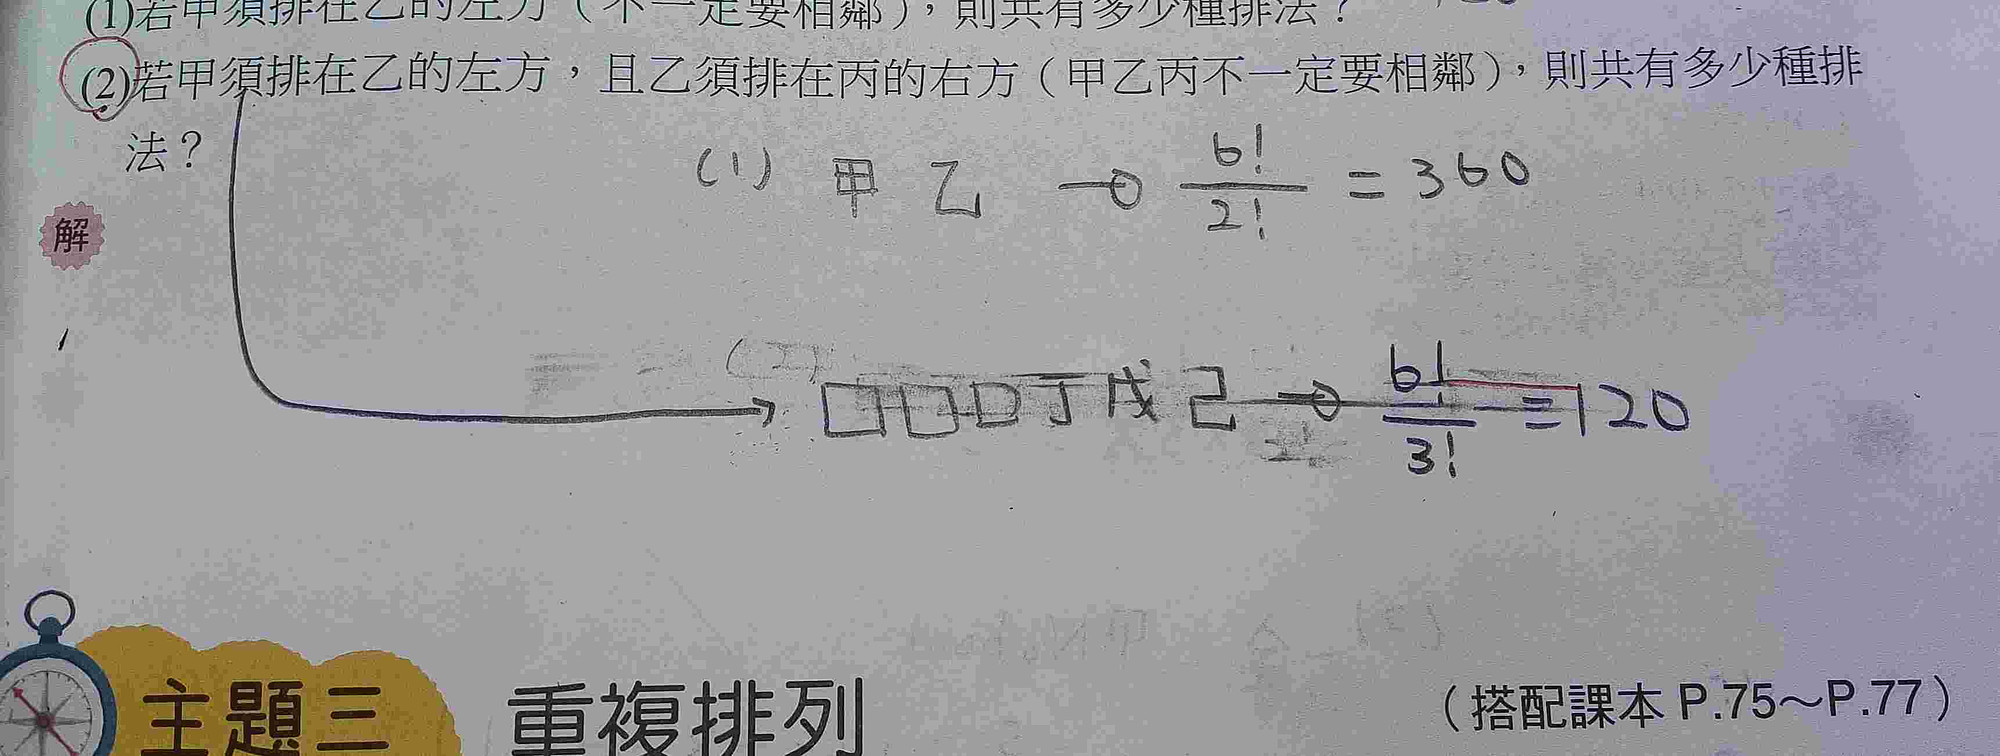 (1)若甲須排在乙的左方（不一定要相鄰），則共有多少種排法？
(2)若甲須排在乙的左方，且乙須排在丙的右方（甲乙丙不一定要相鄰），則共有多少種排
法？
(1) 甲 乙 → 6!/2! = 360
解
□□□丁戊己 → 6!/3! = 120
主題三 重複排列 （搭配課本 P.75～P.77）